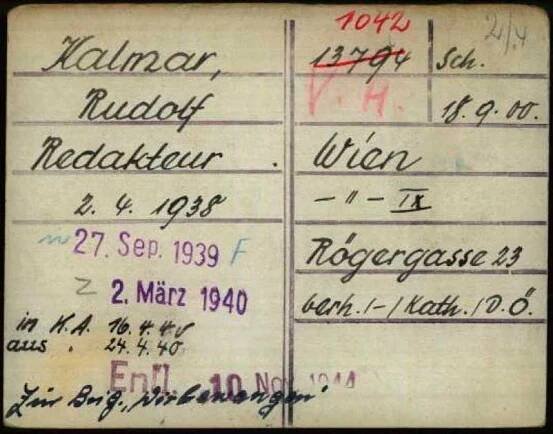 Kalmar,
Rudolf
Redakteur
2. 4. 1938
27. Sep. 1939 F
Z 2. März 1940
in K.A. 16.4.40
aus " 24.4.40
Entl. 10 Nov. 1944
Zur Brig. "Dirlewanger"
1042
2/4
13794
Sch.
V. H.
18.9.00.
Wien
- " - IX
Rögergasse 23
verh. /-/ Kath. / D.Ö.